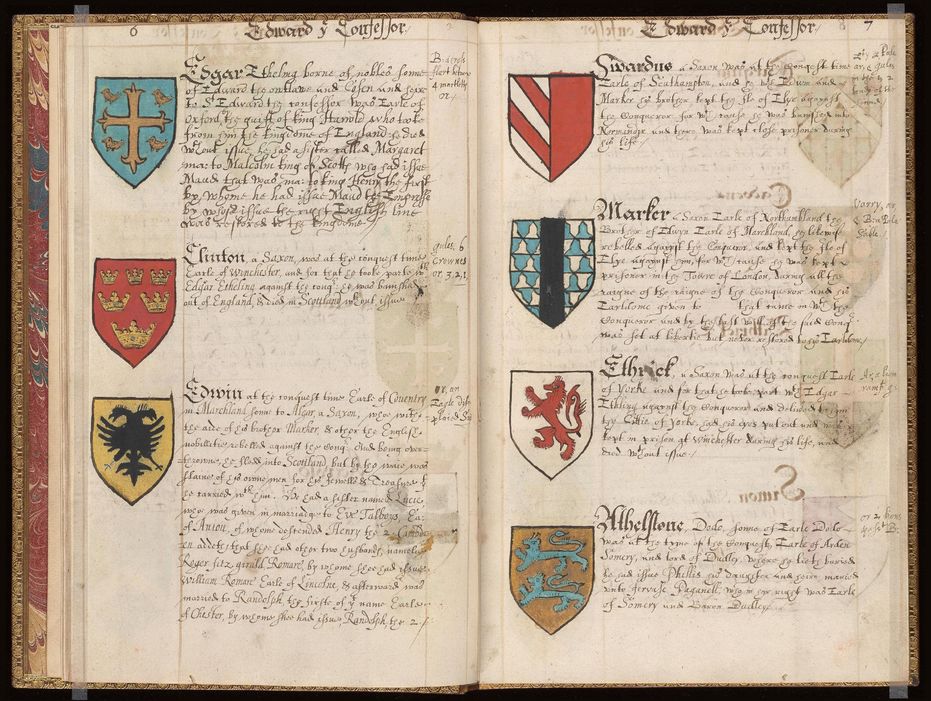 6
Edward yͤ Confessor.
Edgar Etheling borne of nobles sonne
of Edward the outlawe and Cosen and heire
to St Edward the confessor was Earle of
Oxford, the guift of king Harold who tooke
from him the kingdome of England: he died
without issue, he had a sister called Margaret
ma: to Malcolm king of Scotts who had issue
Maud that was ma: to king Henry the first
by whome he had issue Maud the Empresse
by whose issue the right English line
was restored to the kingdome.
B a cross
4 martletts
or
Clinton, a Saxon, was at the conquest time
Earle of Winchester, and for that he tooke parte wth
Edgar Etheling against the conq: he was banished
out of England, & died in Scotland wthout issue
gules, 6
Crownes
or, 3, 2, 1,
Edwin at the conquest time Earle of Coventry
in Marchland, sonne to Algar, a Saxon, who with
the aide of his brother Marker, & other the English
nobillitie rebelled against the conq: And being over-
throwne, he fledd into Scotland, but by the waie was
slaine of his owne men for his Jewells & Treasure
he carried wth him. He had a sister named Lucie
who was given in marriadge to Eve Talboys, Ea:
of Aniou, of whome descended Henry the 2. Cambd-
en addeth, that she had other two husbands, namelie
Roger fitz girald Romare, by whome shee had issue
William Romare Earle of Lincolne, & afterward was
maried to Randolph, the firste of yt name Earle
of Chester, by whome shee had issue Randolph, the 2.
or, an
Egle dis-
plaied Sa
7
Edward yͤ Confessor
Swardus a Saxon was at the conquest time
Earle of Southampton, and wth Edwin and
Marker his brother kept the Ile of Elye against
the Conqueror for wch cause he was banished into
Normandye and there was kept close prisoner during
his life.
Marker a Saxon Earle of Northumbland the
Brother of Edwyn Earle of Marchland, he likewise
rebelled against the Conqueror, and kept the Ile of
Elye against him, for wch cause he was kept
prisoner in the Towre of London, during all the
raigne of the Conqueror and his
Earldome given to that came in wth the
Conqueror and by the last will of the said Conq:
was set at libertie but never restored to his Earldome.
Varry, ar,
& B a Pale
Sable.
Ethrick, a Saxon was at the conquest Earle
of Yorke and for that he tooke part wth Edgar
Etheling against the Conqueror and delivered to him
the Cittie of Yorke, had his eyes put out and was
kept in prison at Winchester during his life, and
died wthout issue.
Ar, a lyon
ramp: g:
Athelstone Dodo, sonne of Earle Dodo
was at the tyme of the Conquest, Earle of Arden
Somery, and lord of Dudley, where he lieth buried
he had issue Phillis his daughter and heire, maried
unto Gervase Paganell, whom her right was Earle
of Somery and Baron Dudley.
or 2 lions
pass: B.